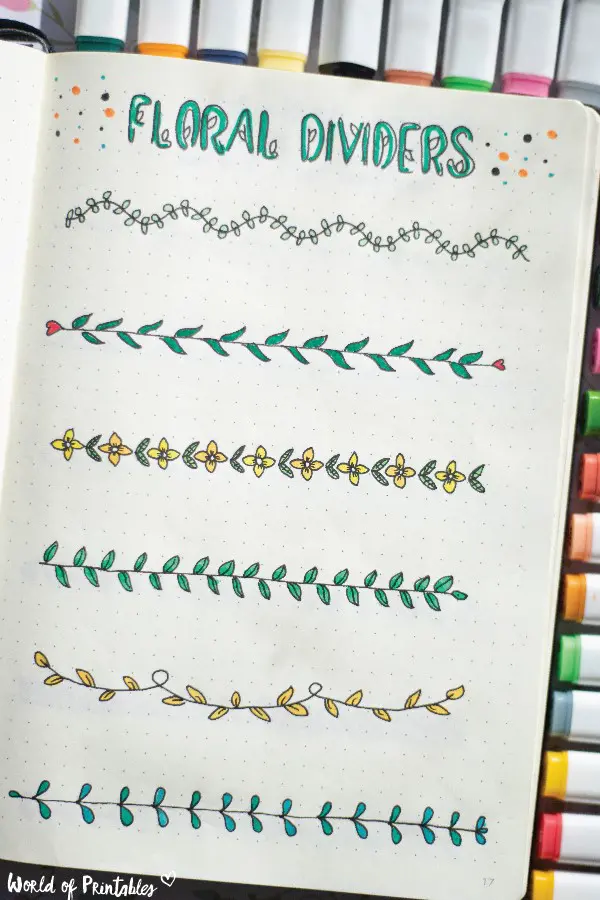 FLORAL DIVIDERS
17
World of Printables